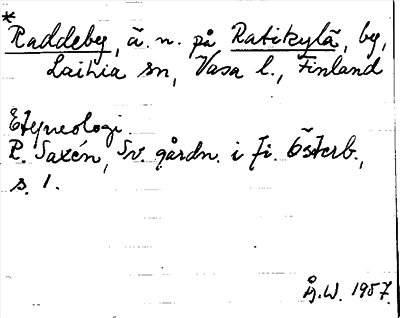 *
Raddeby, ä. n. på Ratikylä, by,
Laihia sn, Vasa l., Finland
Etymologi.
R. Saxén, Sv. gårdn. i fi. Österb.,
s. 1.
Å.W. 1957.